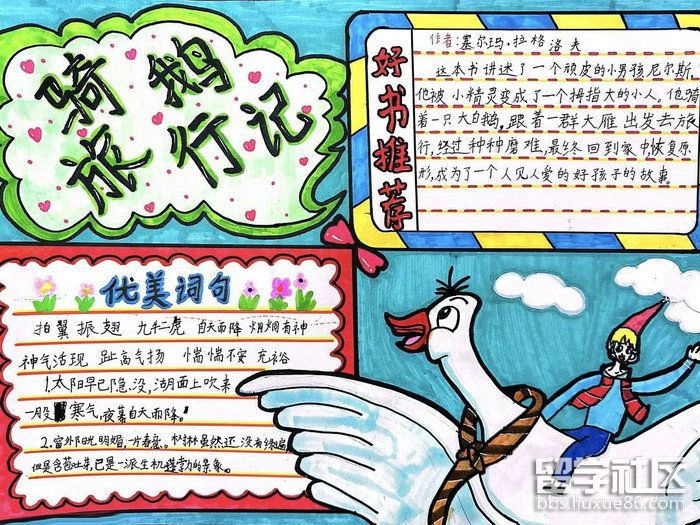 骑鹅
旅行记
好书推荐
作者:塞尔玛·拉格洛夫
这本书讲述了一个顽皮的小男孩尼尔斯,
他被小精灵变成了一个拇指大的小人,他骑
着一只大白鹅,跟着一群大雁出发去旅
行,经过种种磨难,最终回到家中恢复原
形,成为了一个人见人爱的好孩子的故事。
优美词句
拍翼振翅 九牛二虎 自天而降 炯炯有神
神气活现 趾高气扬 惴惴不安 充裕
1.太阳早已隐没,湖面上吹来
一股寒气,夜幕自天而降。
2.窗外阳光明媚,一片春意。树林虽然还没有绿遍,
但是含苞吐芽,已是一派生机蓬勃的景象。
留学社区
bbs.liuxue86.com